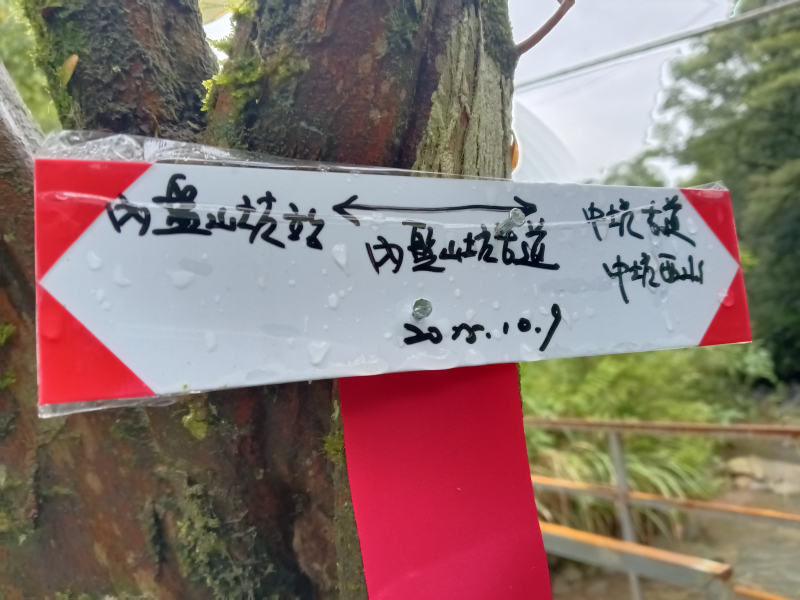 内盤山坑站 ←→ 中坑古道
内盤山坑古道 中坑西山
2025.10.9